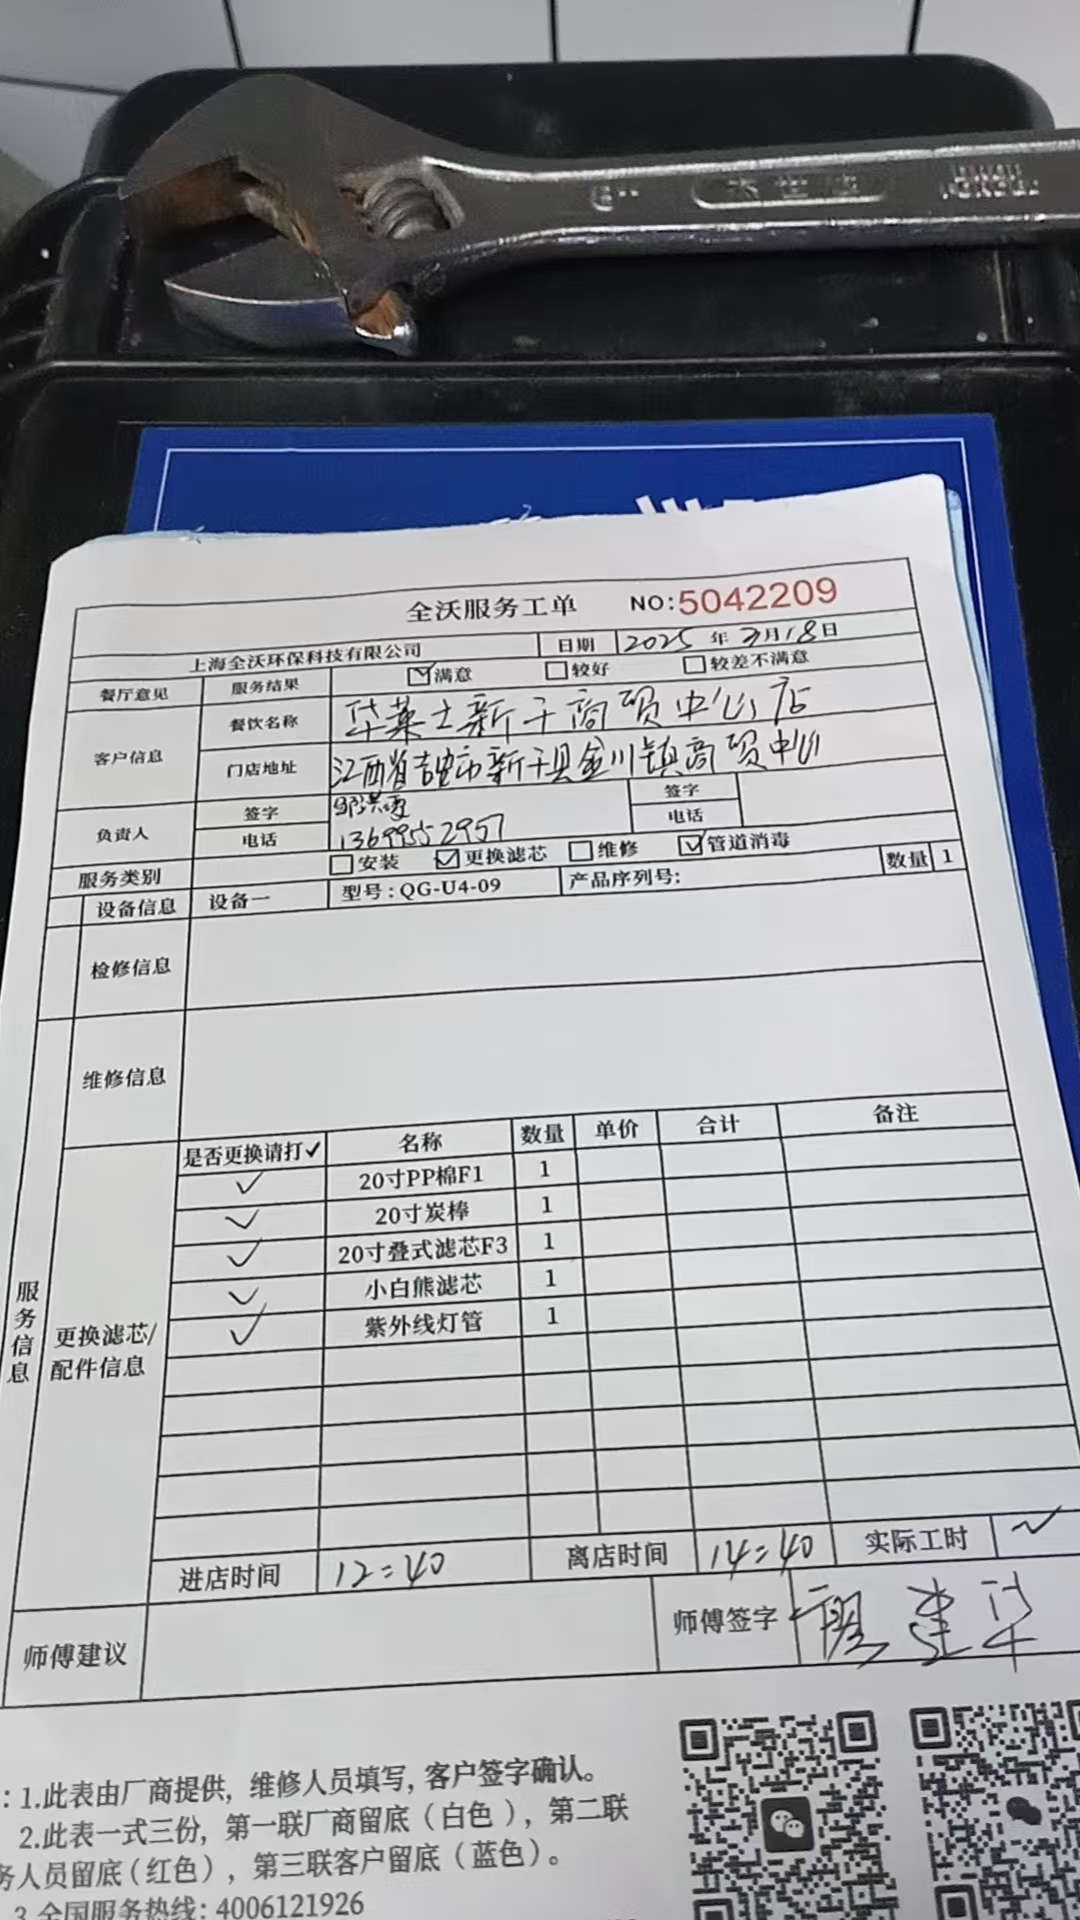 全沃服务工单 NO:5042209
上海全沃环保科技有限公司 日期 2025年3月18日
餐厅意见 服务结果 满意 较好 较差不满意
客户信息 餐饮名称 华莱士新干商贸中心店
门店地址 江西省吉安市新干县金川镇商贸中心
负责人 签字 签字
电话 13699552957 电话
服务类别 安装 更换滤芯 维修 管道消毒
设备信息 设备一 型号:QG-U4-09 产品序列号: 数量 1
检修信息
维修信息
服务信息
更换滤芯/配件信息
是否更换请打✓ 名称 数量 单价 合计 备注
✓ 20寸PP棉F1 1
✓ 20寸炭棒 1
✓ 20寸叠式滤芯F3 1
✓ 小白熊滤芯 1
✓ 紫外线灯管 1
进店时间 12:40 离店时间 14:40 实际工时
师傅建议 师傅签字 廖建华
:1.此表由厂商提供, 维修人员填写, 客户签字确认。
2.此表一式三份, 第一联厂商留底(白色), 第二联
务人员留底(红色), 第三联客户留底(蓝色)。
3.全国服务热线: 4006121926